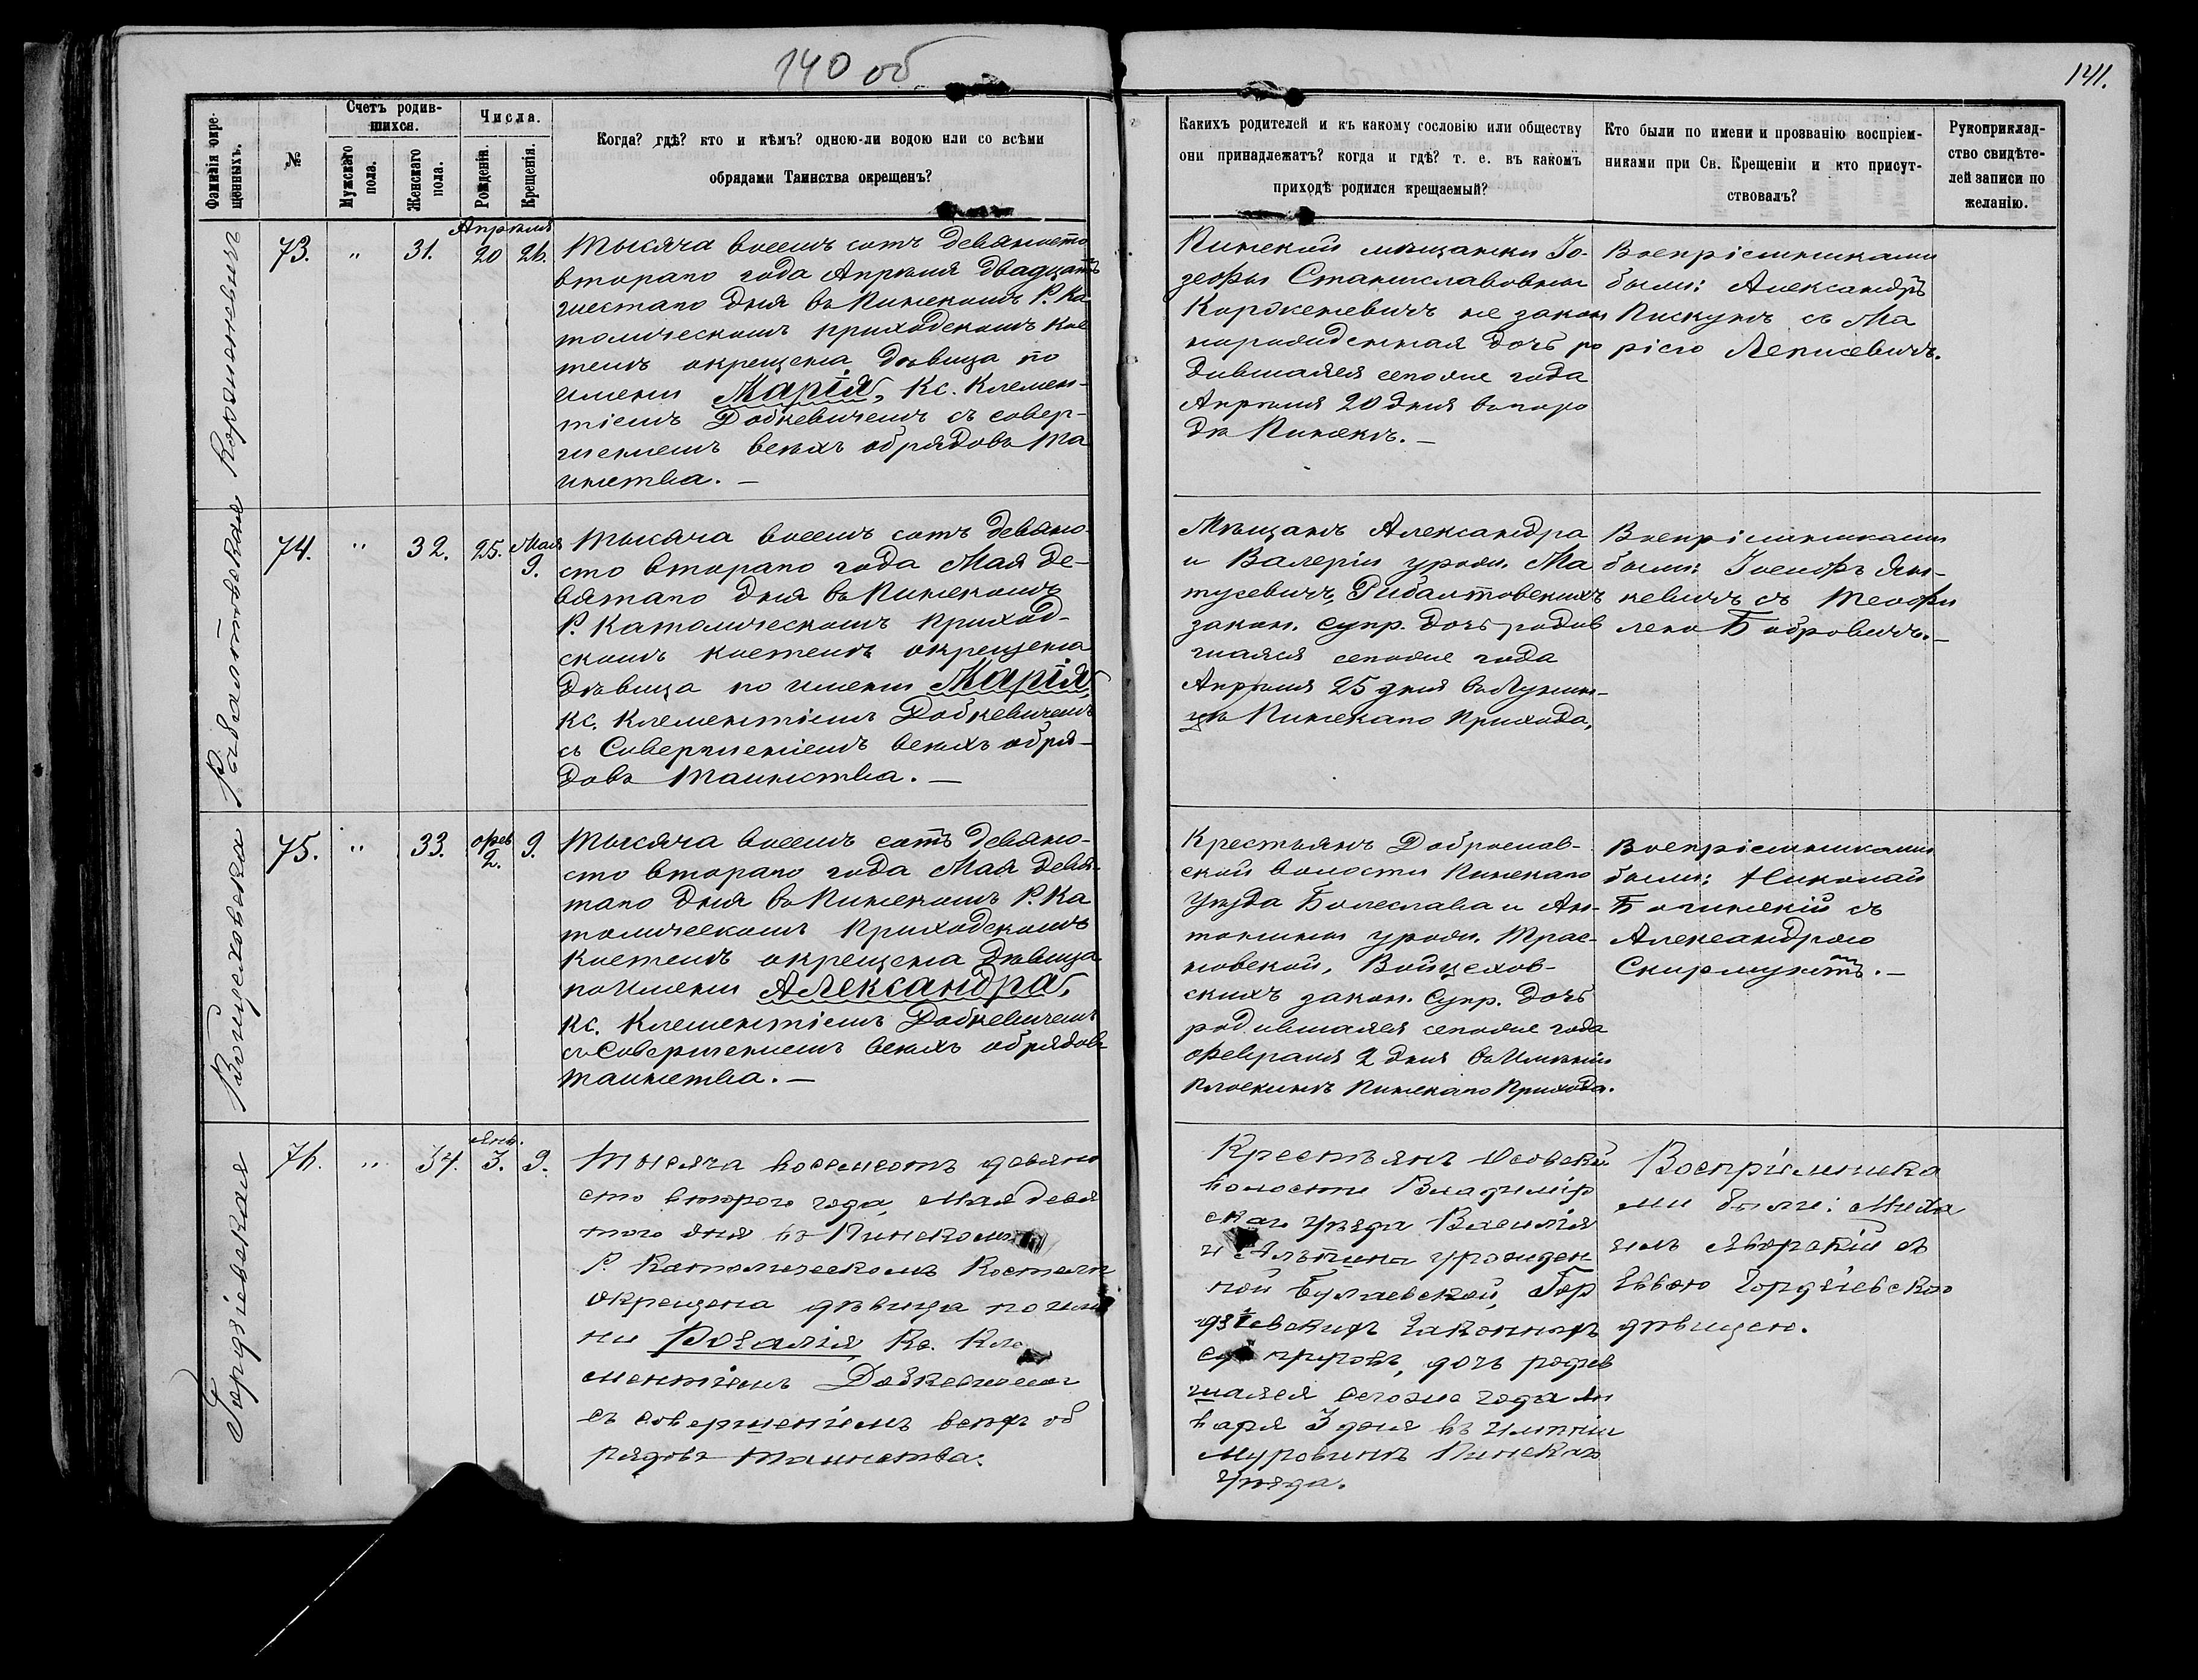 140 об
141.
Фамилія окре-
щенныхъ.
№
Счетъ родив-
шихся.
Мужскаго
пола.
Женскаго
пола.
Числа.
Рожденія.
Крещенія.
Когда? гдѣ? кто и кѣмъ? одною-ли водою или со всѣми
обрядами Таинства окрещенъ?
Какихъ родителей и къ какому сословію или обществу
они принадлежатъ? когда и гдѣ? т. е. въ какомъ
приходѣ родился крещаемый?
Кто были по имени и прозванію воспріем-
никами при Св. Крещеніи и кто присут-
ствовалъ?
Рукоприклад-
ство свидѣте-
лей записи по
желанію.
Корженевичъ
73.
"
31.
Апрѣля
20
26.
Тысяча восемь сотъ девяносто
второго года Апрѣля двадцать
шестаго дня въ Пинскомъ Р. Ка
толическомъ приходскомъ кос
телѣ окрещена дѣвица по
имени Марія, Кс. Климен-
тіемъ Добкевичемъ съ совер-
шениемъ всѣхъ обрядовъ Та
инства. —
Пинской мѣщанки Іо-
зефы Станиславовны
Корженевичъ не закон
норожденная дочь ро
дившаяся сегоже года
Апрѣля 20 дня въ горо
дѣ Пинскѣ. —
Воспріемниками
были: Александръ
Пискунъ съ Ма
ріею Леписевичъ.
Рыбалтовская
74.
"
32.
25.
Мая
9.
Тысяча восемь сотъ девяно-
сто второго года Мая де-
вятаго дня въ Пинскомъ
Р. Католическомъ приход-
скомъ костелѣ окрещена
дѣвица по имени Марія,
Кс. Климентіемъ Добкевичемъ
съ Совершеніемъ всѣхъ обря-
довъ Таинства. —
Мѣщанъ Александра
и Валеріи урожд. Ма
тусевичъ, Рибалтовскихъ
закон. супр. дочь родив
шаяся сегоже года
Апрѣля 25 дня въ Лунин-
цѣ Пинскаго Прихода,
Воспріемниками
были: Іосифъ Ян-
кевичъ съ Теофи
лею Бобровичъ. —
Войцеховска
75.
"
33.
Фев
2.
9.
Тысяча восемь сотъ девяно-
сто второго года Мая девя-
таго дня въ Пинскомъ Р. Ка
толическомъ Приходскомъ
костелѣ окрещена дѣвица
по имени Александра,
Кс. Климентіемъ Добкевичемъ
съ Совершениемъ всѣхъ обрядовъ
таинства. —
Крестьянъ Доброслав-
ской волости Пинскаго
Уѣзда Болеслава и Ан-
тонины урожд. Трас-
ковской, Войцехов-
скихъ закон. Супр. дочь
родившаяся сегоже года
Февраля 2 дня въ Имѣніи
Плоскинѣ Пинскаго Прихода.
Воспріемниками
были: Николай
Богинскій съ
Александрою
Скирмунтъ. —
Гордзіевская
76.
"
34.
Янв.
3.
9.
Тысяча восемсотъ девяно
сто второго года, Мая девя
того дня въ Пинскомъ
Р. Католическомъ Костелѣ
окрещена дѣвица по име
ни Розалія, Кс. Кли
ментіемъ Добкевичемъ
съ совершеніемъ всѣхъ об
рядовъ таинства.
Крестьянъ Осовской
волости Владимір
скаго уѣзда Василія
и Альвина урожден
ной Булаевской, Гор
дзіевскихъ Законныхъ
супруговъ, дочь родив
шаяся сегоже года Ян
варя 3 дня въ имѣніи
Муровинѣ Пинскаго
Уѣзда.
Воспріемника
ми были: Миха
илъ Яворскій съ
Евою Гордзіевскою
дѣвицею.